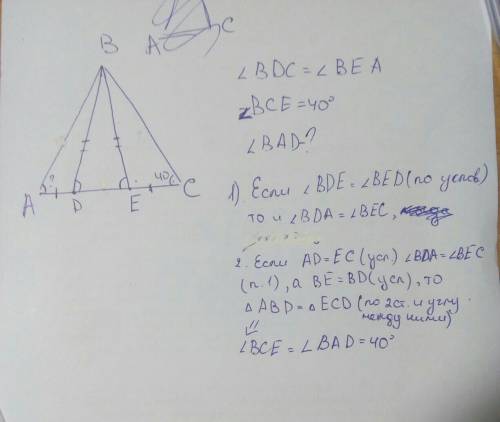 A C
B
∠BDC = ∠BEA
∠BCE = 40°
∠BAD-?
? 40°
A D E C
1) Если ∠BDE = ∠BED (по услов)
то и ∠BDA = ∠BEC,
2. Если AD = EC (усл) ∠BDA = ∠BEC
(п. 1), а BE = BD (усл), то
△ABD = △ECD (по 2 ст. и углу
между ними)
⇓
∠BCE = ∠BAD = 40°